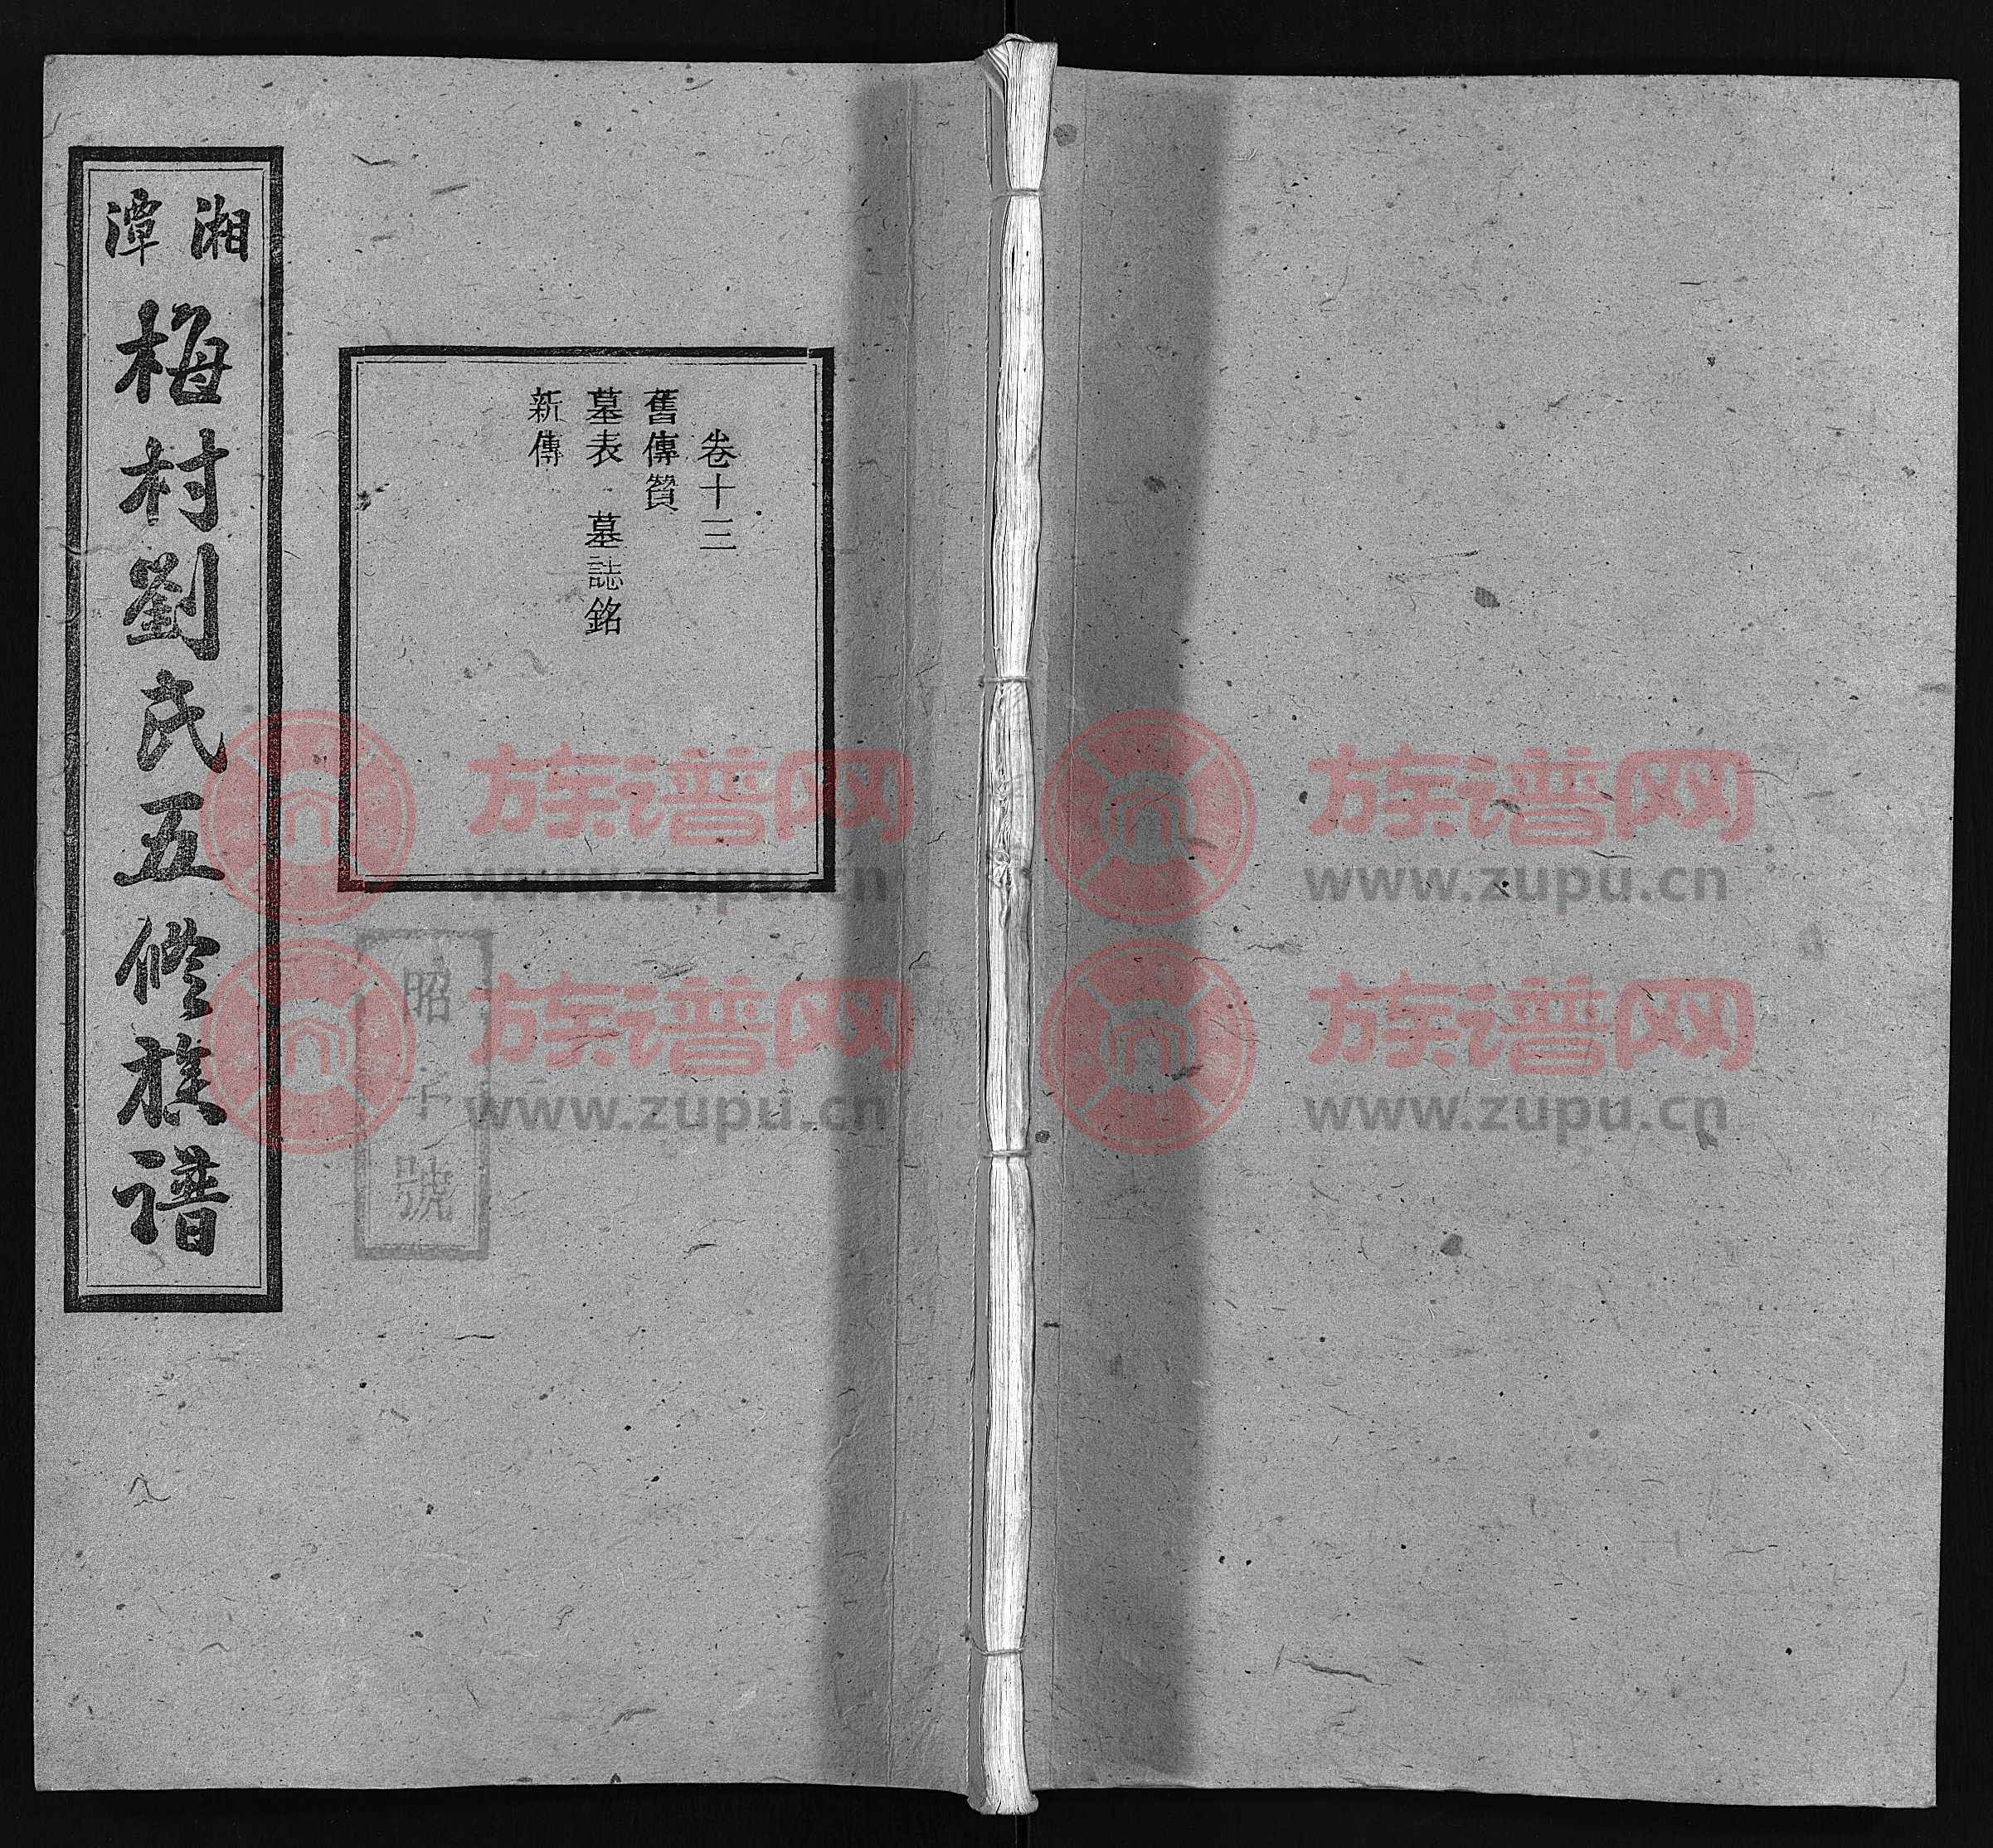 湘潭
梅村劉氏五修族譜
卷十三
舊傳贊
墓表 墓誌銘
新傳
昭字號
族谱网
www.zupu.cn
族谱网
www.zupu.cn
族谱网
www.zupu.cn
族谱网
www.zupu.cn